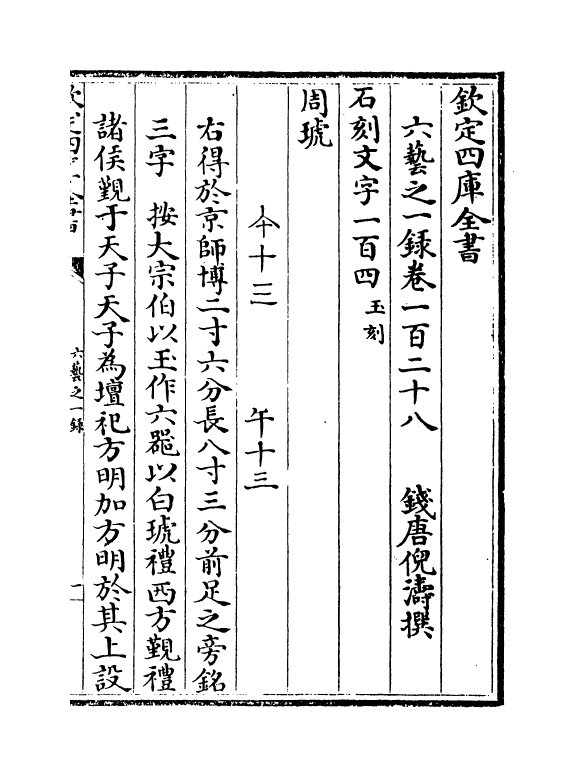 欽定四庫全書
六藝之一録卷一百二十八　錢唐倪濤撰
石刻文字一百四 玉刻
周琥
仐十三　午十三
右得於京師博二寸六分長八寸三分前足之旁銘
三字　按大宗伯以玉作六器以白琥禮西方覲禮
諸侯覲于天子天子為壇祀方明加方明於其上設
欽定四庫全書
六藝之一録
一